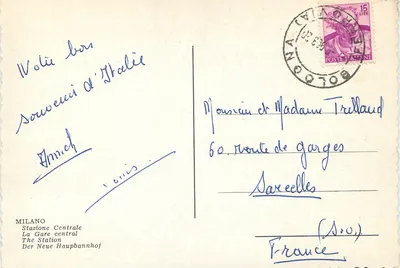 bon
souvenir d'Italie
Annick
Louis
MILANO
Stazione Centrale
La Gare central
The Station
Der Neue Haupbannhof
15
BOLOGNA
Monsieur et Madame Trelland
60. route de garges
Sarcelles
(S.O.)
France